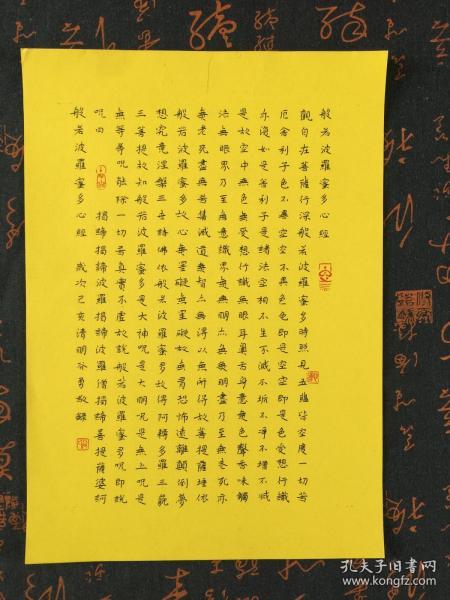 般若波羅蜜多心經
觀自在菩薩行深般若波羅蜜多時照見五蘊皆空度一切苦
厄舍利子色不異空空不異色色即是空空即是色受想行識
亦復如是舍利子是諸法空相不生不滅不垢不淨不增不減
是故空中無色無受想行識無眼耳鼻舌身意無色聲香味觸
法無眼界乃至無意識界無無明亦無無明盡乃至無老死亦
無老死盡無苦集滅道無智亦無得以無所得故菩提薩埵依
般若波羅蜜多故心無罣礙無罣礙故無有恐怖遠離顛倒夢
想究竟涅槃三世諸佛依般若波羅蜜多故得阿耨多羅三藐
三菩提故知般若波羅蜜多是大神咒是大明咒是無上咒是
無等等咒能除一切苦真實不虛故說般若波羅蜜多咒即說
咒曰 揭諦揭諦波羅揭諦波羅僧揭諦菩提薩婆訶
般若波羅蜜多心經 歲次己亥清明 勇敬錄
孔夫子旧书网
www.kongfz.com